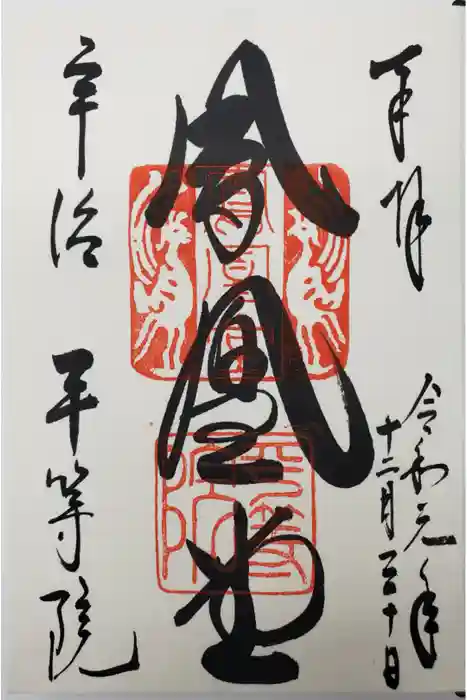 奉拝
令和元年
十二月三十日
鳳凰堂
宇治 平等院